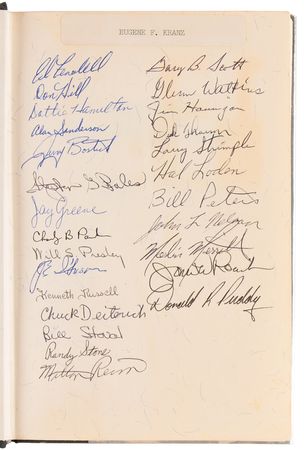 EUGENE F. KRANZ
Ed Fendell
Don Hill
Dottie Hamilton
Alan Glines
Jerry Bostick
Stephen G Bales
Jay Greene
Charley B Parker
Will S. Presley
Kenneth Russell
Chuck Deiterich
Bill Stoval
Randy Stone
Milton
Gary B. Scott
Glenn Watkins
Jim Hannigan
Larry Strimple
Hal Loden
Bill Peters
John
Merlin Merritt
Donald R Puddy